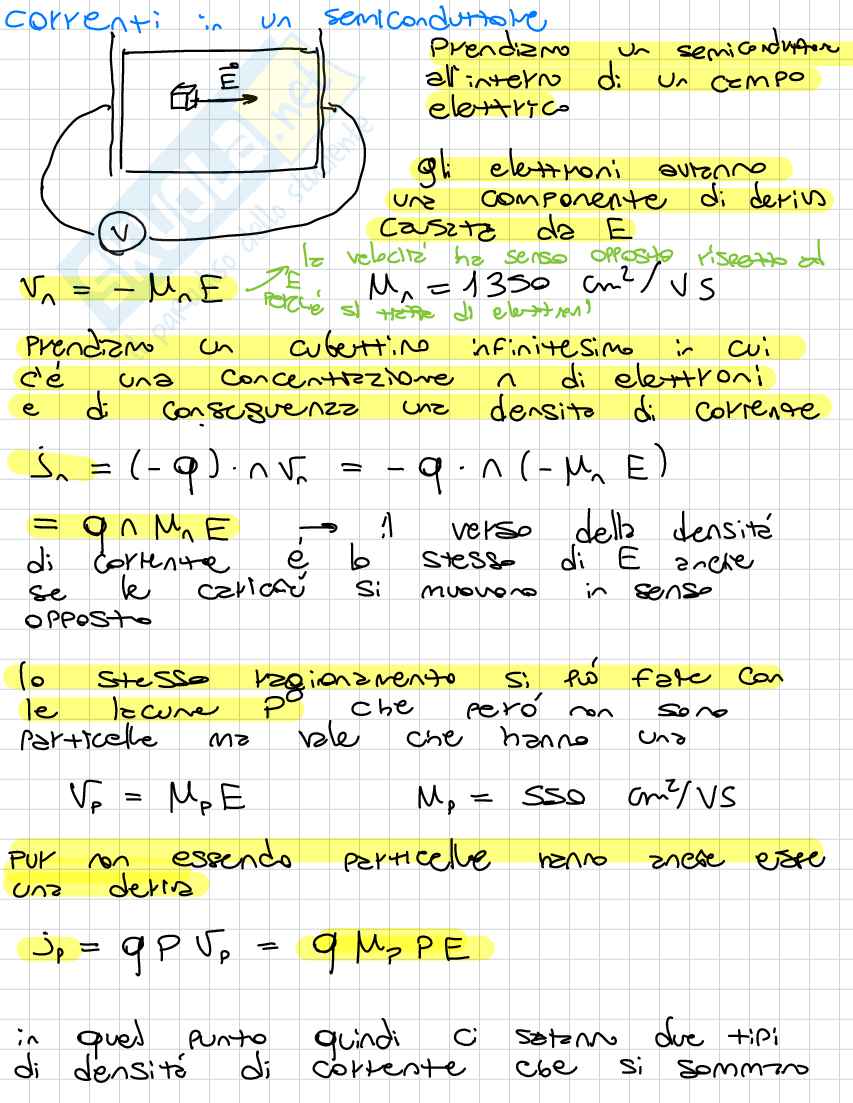 correnti in un semiconduttore
Prendiamo un semiconduttore
all'interno di un campo
elettrico
E
gli elettroni avranno
una componente di deriva
causata da E
V
la velocitá ha senso opposto rispetto ad
E
perché si tratta di elettroni
Vn = - μn E
μn = 1350 cm²/VS
Prendiamo un cubettino infinitesimo in cui
c'é una concentrazione n di elettroni
e di conseguenza una densita di corrente
jn = (-q) · n Vn = - q · n (- μn E)
= q n μn E → il verso della densitá
di corrente é lo stesso di E anche
se le cariche si muovono in senso
opposto
lo stesso ragionamento si puó fare con
le lacune p⁰ che peró non sono
particelle ma vale che hanno una
Vp = μp E
μp = 550 cm²/VS
pur non essendo particelle hanno anche esse
una deriva
jp = q p Vp = q μp p E
in quel punto quindi ci saranno due tipi
di densitá di corrente che si sommano
SKUOLA.net